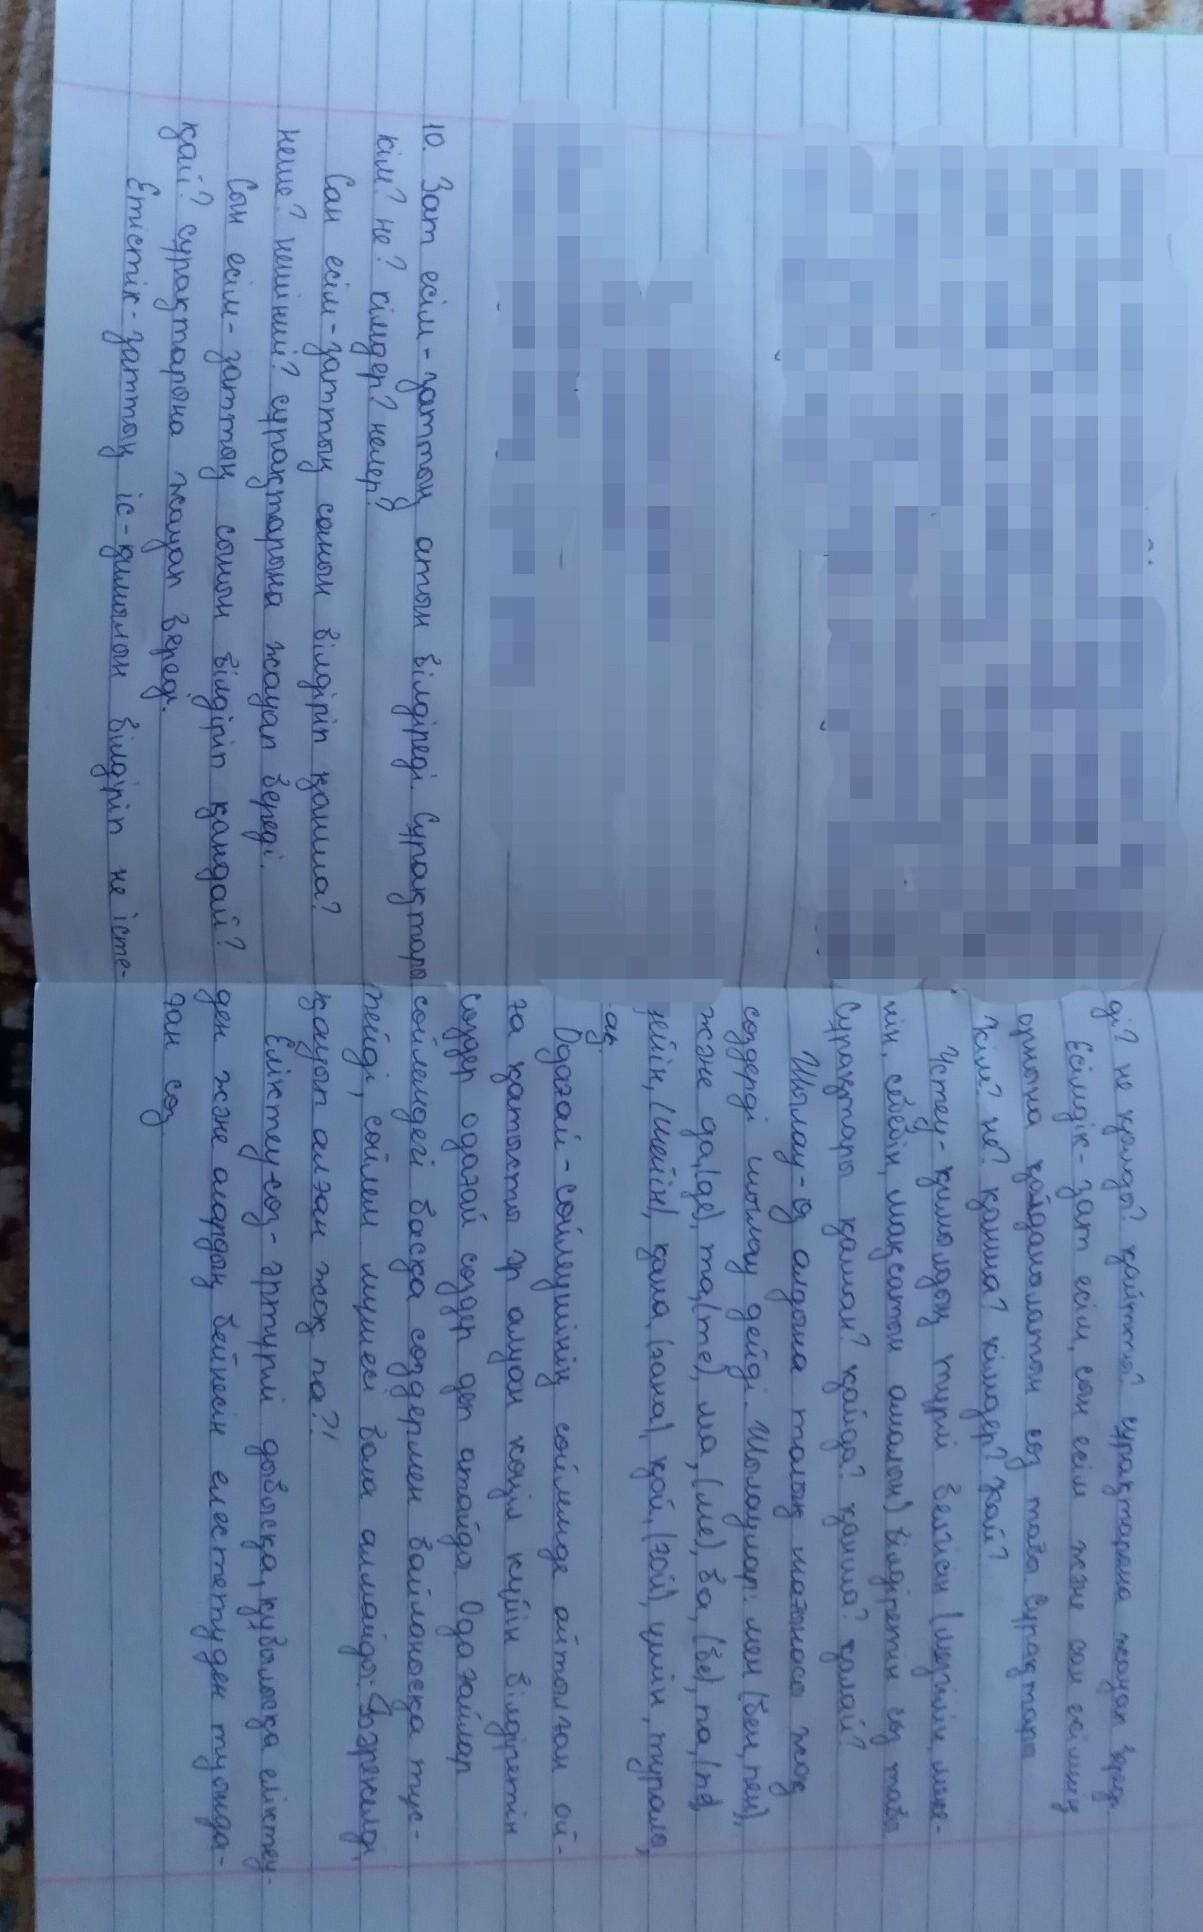 10. Зат есім - заттың атын білдіреді. Сұрақтары
кім? не? кімдер? нелер?
Сан есім - заттың санын білдіріп қанша?
неше? нешінші? сұрақтарына жауап береді.
Сын есім - заттың сынын білдіріп қандай?
қай? сұрақтарына жауап береді.
Етістік - заттың іс-қимылын білдіріп не істе-
ді? не қылды? қайтті? сұрақтарына жауап береді
Есімдік - зат есім, сын есім және сан есімнің
орнына қолданылатын сөз табы Сұрақтары
кім? не? қанша? кімдер? қай?
Үстеу - қимылдың түрлі белгісін (мезгілін, меке-
нін, себебін, мақсатын амалын) білдіретін сөз табы
Сұрақтары қашан? қайда? қанша? қалай?
Шылау - өз алдына толық мағынасы жоқ
сөздерді шылау дейді. Шылаулар: мен (бен, пен),
және да, (де), та, (те), ма, (ме), ба, (бе), па, (пе)
дейін, (шейін), қана (ғана), қой, (ғой), үшін, туралы,
-ақ.
Одағай - сөйлеушінің сөйлемде айтылған ой-
ға қатысты әр алуан көңіл күйін білдіретін
сөздер одағай сөздер деп атайды. Одағайлар
сөйлемдегі басқа сөздермен байланысқа түс-
пейді, сөйлем мүшесі бола алмайды: "Бәрекелді,
қауып алған жоқ па?!"
Еліктеу сөз - әртүрлі дыбысқа, құбылысқа еліктеу-
ден және олардың бейнесін елестетуден туында-
ған сөз